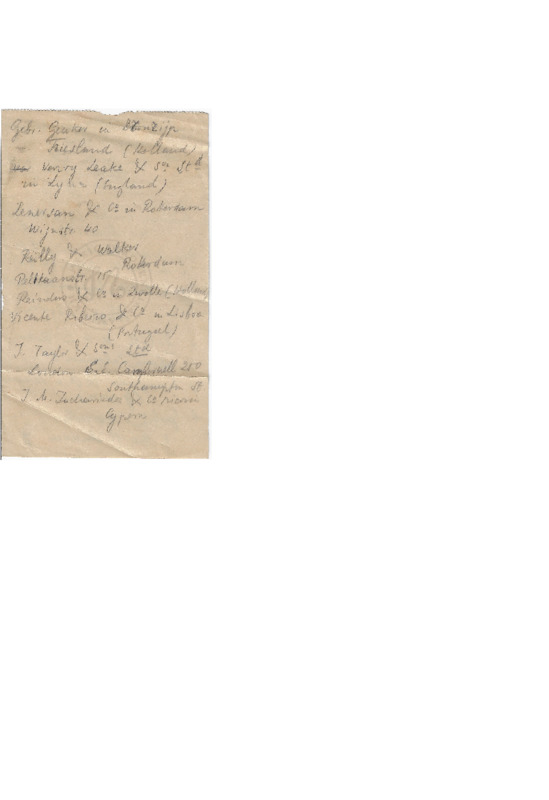 Gebr. Geuker in Stenzijp
Friesland (Holland)
Henry Leake & Son Ltd
in Lynn (England)
Lenersan & Co in Roterdam
Wijnstr 40
Reilly & Walker
Roterdam
Pelikaanstr 15
Reinders & Co in Zwolle (Holland
Vicente Ribeiro & Co in Lisboa
(Portugal)
J. Taylor & Sons Ltd
London Camberwell 250
Southampton St
& Co
Cypern